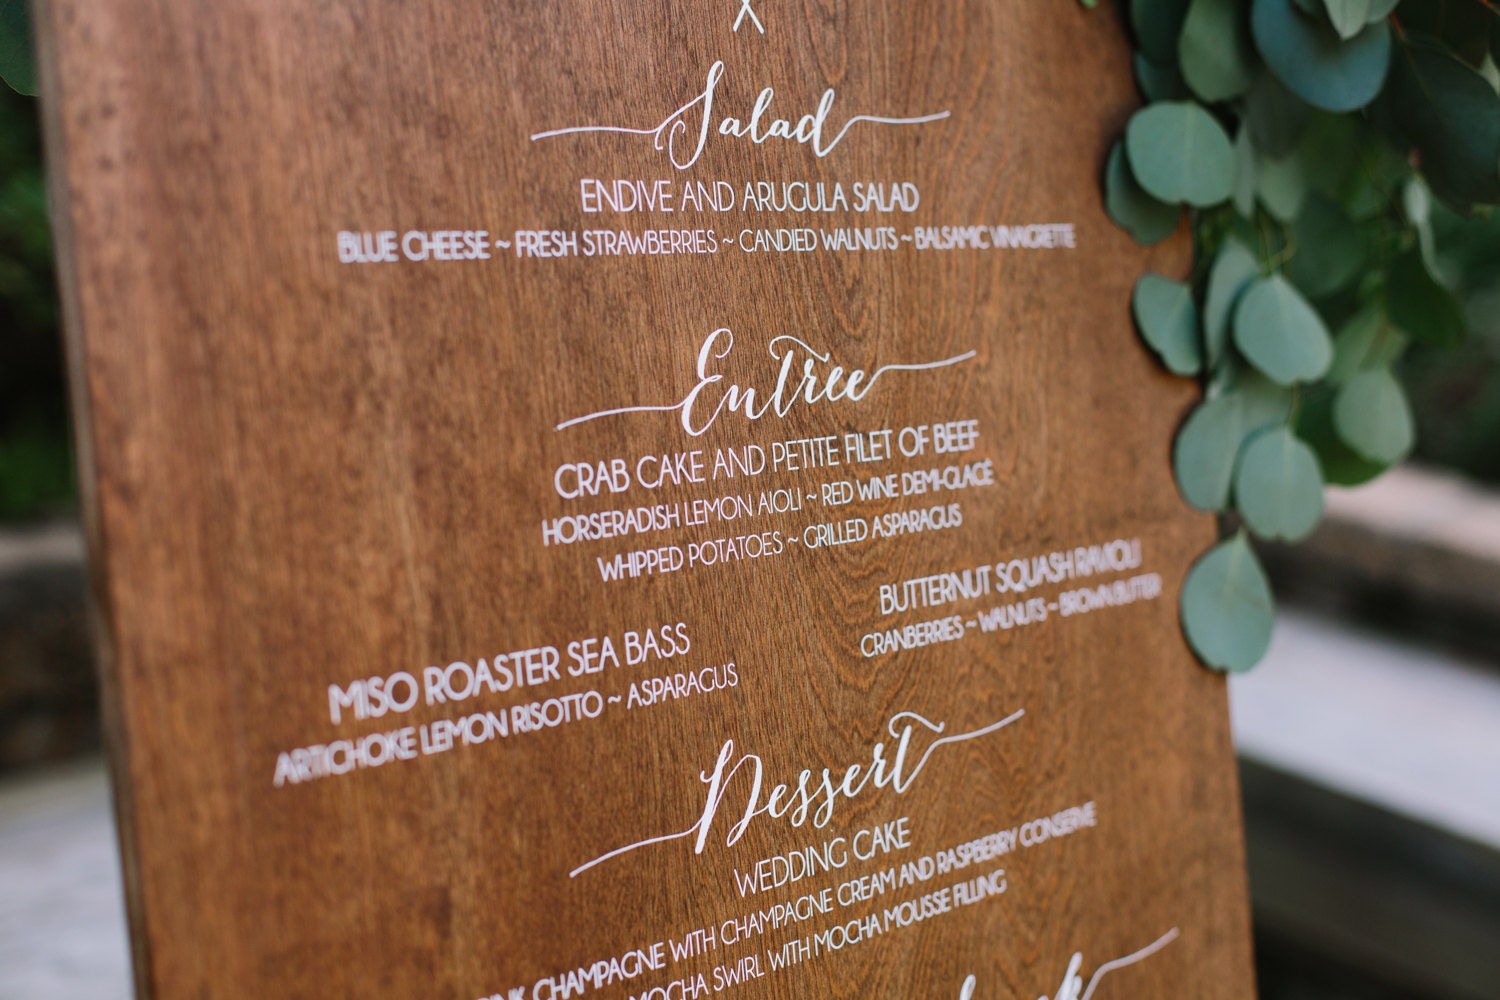 Salad
ENDIVE AND ARUGULA SALAD
BLUE CHEESE ~ FRESH STRAWBERRIES ~ CANDIED WALNUTS ~ BALSAMIC VINAIGRETTE
Entrée
CRAB CAKE AND PETITE FILET OF BEEF
HORSERADISH LEMON AIOLI ~ RED WINE DEMI-GLACÉ
WHIPPED POTATOES ~ GRILLED ASPARAGUS
BUTTERNUT SQUASH RAVIOLI
CRANBERRIES ~ WALNUTS ~ BROWN BUTTER
MISO ROASTER SEA BASS
ARTICHOKE LEMON RISOTTO ~ ASPARAGUS
Dessert
WEDDING CAKE
CHAMPAGNE WITH CHAMPAGNE CREAM AND RASPBERRY CONSERVE
MOCHA SWIRL WITH MOCHA MOUSSE FILLING